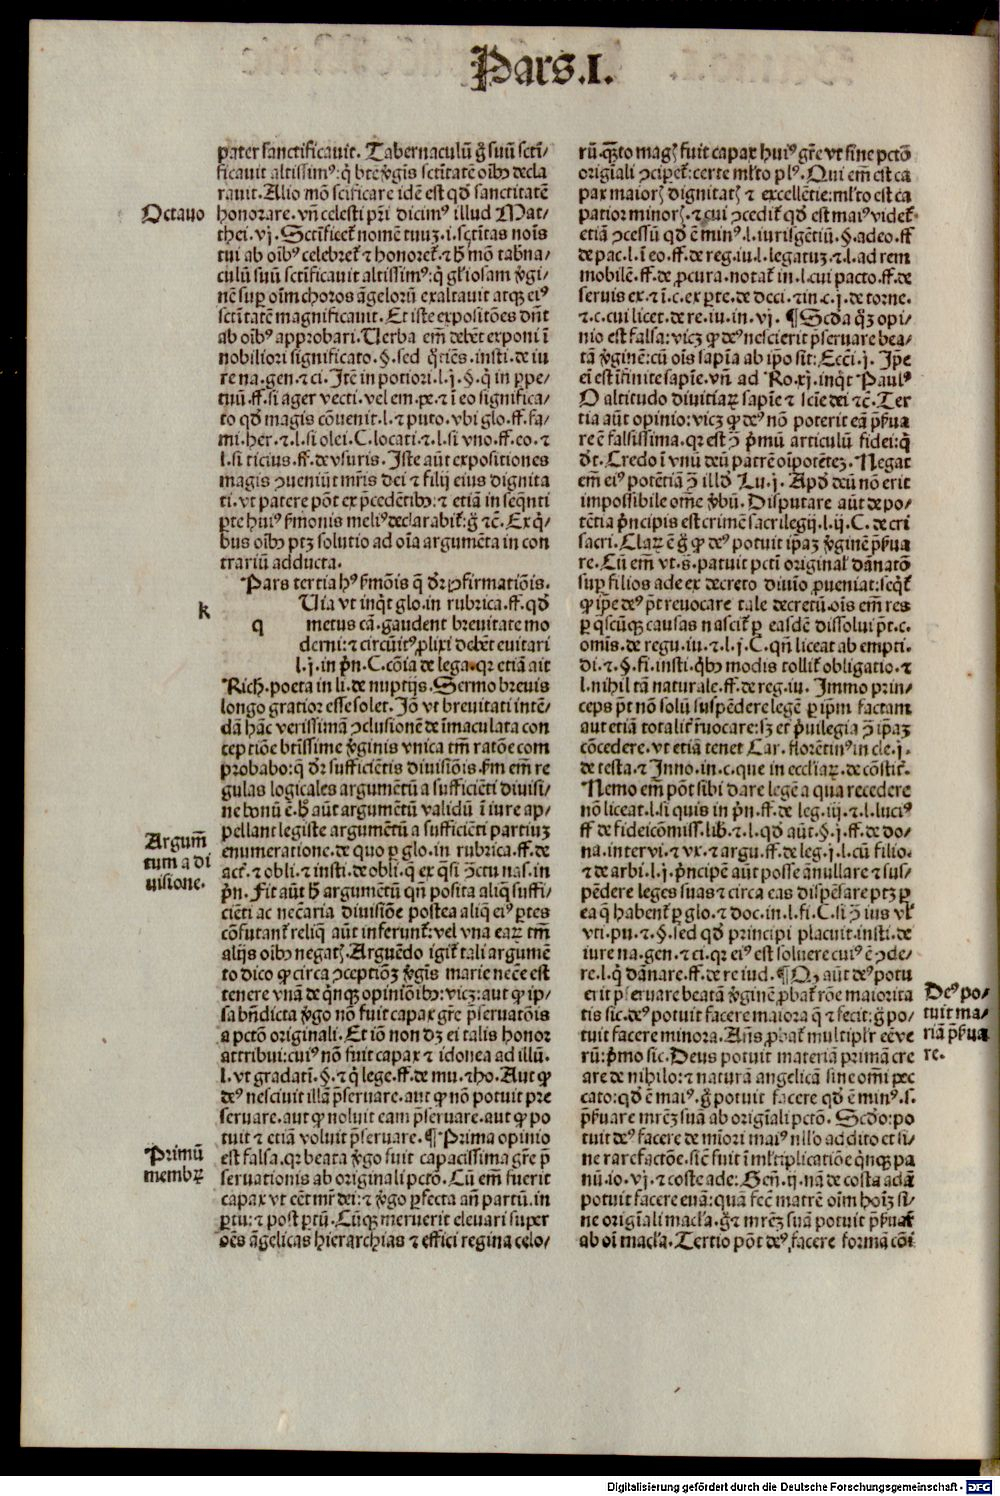 Pars.I.
pater sanctificauit. Tabernaculū g̃ suū sctī-
ficauit altissimꝰ: q̄ bt̄e v̓gis sctītatē oībꝰ decla
rauit. Alio mō scificare idē est qd̓ sanctitatē
Octauo
honorare. vn̄ celesti pr̄i dicimꝰ illud Mat-
thei. vj. Sctīficet᷑ nomē tuuꝫ. i. sctītas noīs
tui ab oībꝰ celebret᷑ ⁊ honoret᷑. ⁊ h̓ mō tab̓na-
culū suū sctīficauit altissimꝰ: q̄ gl̓iosam v̓gi-
nē suꝑ oīm choros āgeloꝝ exaltauit atqꝫ eiꝰ
sctītatē magnificauit. Et iste expositōes dn̄t
ab oībꝰ approbari. Uerba em̄ debēt exponi ī
nobiliori significato. §. sed q̄tiēs. insti. de iu
re na. gen. ⁊ ci. Itē in potiori. l. j. §. q̓ in ꝑpe-
tuū. ff. si ager vecti. vel em. pe. ⁊ ī eo significa-
to qd̓ magis cōuenit. l. ⁊ puto. vbi glo. ff. fa-
mi. her. ⁊ l. si olei. C. locati. ⁊ l. si vno. ff. eo. ⁊
l. si ticius. ff. de vsuris. Iste aūt expositiones
magis ꝯueniūt mr̄is dei ⁊ filij eius dignita
ti. vt patere pōt ex p̄cedētibꝰ. ⁊ etiā in seq̄nti
ꝑte huiꝰ s̓monis meliꝰ declarabit᷑: g̃ ⁊c̄. Ex q̓-
bus oībꝰ ptꝫ solutio ad oīa argumēta in con
trariū adducta.
Pars tertia hꝰ s̓mōis q̄ dr̄ ꝯfirmatiōis.
k
q
Uia vt inq̓t glo. in rubrica. ff. qd̓
metus cā. gaudent breuitate mo
derni: ⁊ circūitꝰ ꝓlixi debēt euitari
l. j. in prī. C. cōia de lega. qꝛ etiā ait
Rich. poeta in li. de nuptijs. Sermo breuis
longo gratior esse solet. Iō vt breuitati intē-
dā hāc verissimā ꝯclusionē de īmaculata con
ceptiōe bt̄issime v̓ginis vnica tm̄ ratōe com
probabo: q̄ dr̄ sufficiētis diuisiōis. s̓m em̄ re
gulas logicales argumētū a sufficiēti diuisi-
ne bonū ē. h̓ aūt argumētū validū ī iure ap-
Argum̄
tum a di
uisione.
pellant legiste argumētū a sufficiēti partiuꝫ
enumeratione. de quo ꝑ glo. in rubrica. ff. de
act᷑. ⁊ obli. ⁊ insti. de obli. q̄ ex q̄si ꝯctu nas. in
prī. Fit aūt h̓ argumētū qn̄ posita aliq̄ suffi-
ciēti ac nec̄aria diuisiōe postea aliq̄ eiꝰ ꝑtes
cōfutant᷑ reliq̄ aūt inferunt᷑: vel vna eaꝝ tm̄
alijs oībꝰ negatꝭ. Arguēdo igit᷑ tali argumē
to dico ꝙ circa ꝯceptiōꝫ v̓gīs marie nec̄e est
tenere vnā de q̓nqꝫ opiniōibꝰ: vicꝫ: aut ꝙ ip-
sa bn̄dicta v̓go nō fuit capax gr̄e p̄seruatōis
a pctō originali. Et iō non dꝫ ei talis honor
attribui: cuiꝰ nō fuit capax ⁊ idonea ad illū.
l. vt gradatī. §. ⁊ q̓ lege. ff. de mu. ⁊ ho. Aut ꝙ
deꝰ nesciuit illā p̄seruare. aut ꝙ nō potuit pre
seruare. aut ꝙ noluit eam p̄seruare. aut ꝙ po
tuit ⁊ etiā voluit p̄seruare. ¶ Prima opinio
Primū
membꝝ
est falsa. qꝛ beata v̓go fuit capacissima gr̄e p̄
seruationis ab originali pctō. Cū em̄ fuerit
capax vt eēt mr̄ dei: ⁊ v̓go ꝑfecta an̄ partū. in
ꝑtu: ⁊ post ꝑtū. Cūqꝫ meruerit eleuari super
oēs āgelicas hierarchias ⁊ effici regina celo-
rū. q̄to magꝭ fuit capax huiꝰ gr̄e vt sine pctō
origīali ꝯcipet᷑: certe ml̓to plꝰ. Qui em̄ est ca
pax maiorꝭ dignitatꝭ ⁊ excellētie: ml̓to est ca
patior minorꝭ. ⁊ cui ꝯcedit᷑ qd̓ est maiꝰ videt᷑
etiā ꝯcessū qd̓ ē minꝰ. l. iurisgētiū. §. adeo. ff
de pac. l. ī eo. ff. de reg. iu. l. legatuꝫ. ⁊ l. ad rem
mobilē. ff. de ꝓcura. notat᷑ in. l. cui pacto. ff. de
seruis ex. ⁊ ī. c. ex ꝑte. de deci. ⁊ in. c. j. de torne.
⁊. c. cui licet. de re. iu. in. vj. ¶ Scd̓a q̄ꝫ opi-
nio est falsa: vicꝫ ꝙ deꝰ nescierit p̄seruare bea-
tā v̓ginē: cū oīs sapīa ab ip̄o sit: Ecci. j. Ip̄e
ei̓ est īfinite sapīe. vn̄ ad Ro. xj. inq̓t Paulꝰ
O altitudo diuitiaꝝ sapīe ⁊ scīe dei ⁊c̄. Ter
tia aūt opinio: vicꝫ ꝙ deꝰ nō poterit eā p̄s̓ua
re ē falsissima. qꝛ est ꝯ̄ p̄mū articulū fidei: q̄
d̓t. Credo ī vnū deū patrē oīpotētē. Negat
em̄ eiꝰ potētiā ꝯ̄ illd̓ Lu. j. Apd̓ deū nō erit
impossibile om̄e v̓bū. Disputare aūt de po-
tētia p̓ncipis est crimē sacrilegij. l. ij. C. de cri
sacri. Claꝝ ē g̃ ꝙ deꝰ potuit ip̄aꝫ v̓ginē p̄s̓ua
re. Cū em̄ vt. s. patuit pctī original᷑ dānatō
suꝑ filios ade ex decreto diuīo ꝓueniat: seq̄t᷑
ꝙ ip̄e deꝰ p̄t reuocare tale decretū. oīs em̄ res
ꝑ q̄scūqꝫ causas nascit᷑ ꝑ easdē dissolui p̄t. c.
omīs. de regu. iu. ⁊ l. j. C. qn̄ liceat ab empti.
di. ⁊ §. fi. insti. q̓bꝰ modis tollit᷑ obligatio. ⁊
l. nihil tā naturale. ff. de reg. iu. Immo prin-
ceps p̄t nō solū suspēdere legē ꝑ ip̄m factam
aut etiā totalit᷑ r̄uocare: sꝫ et p̓uilegia ꝯ̄ ip̄aꝫ
cōcedere. vt etiā tenet Car. florētinꝰ in cle. j.
de testa. ⁊ Inno. in. c. que in eccl̓iaꝝ. de cōstit᷑.
Nemo em̄ pōt sibi dare legē a qua recedere
nō liceat. l. si quis in prī. ff. de leg. iij. ⁊ l. luciꝰ
ff de fideicōmiss. lib̓. ⁊ l. qd̓ aūt. §. j. ff. de do-
na. inter vi. ⁊ vx. ⁊ argu. ff. de leg. j. l. cū filio.
⁊ de arbi. l. j. p̓ncipē aūt posse ānullare ⁊ sus-
pēdere leges suas ⁊ circa eas dispēsare ptꝫ ꝑ
ea q̄ habent᷑ ꝑ glo. ⁊ doc. in. l. fi. C. si ꝯ̄ ius vl̓
vti. pu. ⁊ §. sed qd̓ principi placuit. insti. de
iure na. gen. ⁊ ci. qꝛ eiꝰ est soluere cuiꝰ ē ꝯde-
re. l. q̓ dānare. ff. de re iud. ¶ Qꝫ aūt deꝰ potu
Deꝰ po-
tuit ma-
riā p̄s̓ua
re.
erit p̄seruare beatā v̓ginē ꝓbat᷑ rōe maiorita
tis sic. deꝰ potuit facere maiora q̄ ⁊ fecit: g̃ po-
tuit facere minora. An̄s ꝓbat᷑ multipl̓r eē ve
rū: p̓mo sic. Deus potuit materiā primā cre
are de nihilo: ⁊ naturā angelicā sine om̄i pec
cato: qd̓ ē maiꝰ. g̃ potuit facere qd̓ ē minꝰ. s.
p̄s̓uare mr̄eꝫ suā ab origīali pctō. Scd̓o: po
tuit deꝰ facere de mīori maiꝰ nll̓o addito et si-
ne rarefactōe. sic̄ fuit ī ml̓tiplicatiōe q̓nqꝫ pa
nū. io. vj. ⁊ coste ade: Gen̄. ij. nā de costa adā
potuit facere euā: quā fec̄ matrē oīm hoīꝫ si-
ne origīali macl̓a. g̃ ⁊ mr̄eꝫ suā potuit p̄s̓uar̄
ab oī macl̓a. Tertio pōt deꝰ facere formā cōī
Digitalisierung gefördert durch die Deutsche Forschungsgemeinschaft - DFG